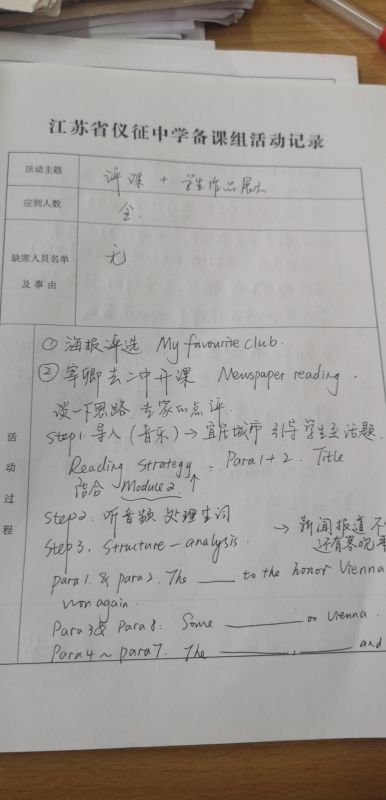 江苏省仪征中学备课组活动记录
活动主题 评课 + 学生作品展示
应到人数 全.
缺席人员名单及事由 无
活动过程
① 海报评选 My favourite club.
② 寒卿去二中开课 Newspaper reading.
谈一下思路. 专家的点评.
Step1. 导入(音乐)→宜居城市 引导学生至话题.
Reading Strategy: Para 1+2. Title
结合 Module 2. ↑
Step2. 听音频 处理生词
→ 新闻报道不
Step3. Structure-analysis.
还有
para1. & para2. The ____ to the honor Vienna
won again.
Para 3 & Para 8: Some ________ on Vienna.
Para4 ~ para7. The ________, ____ and